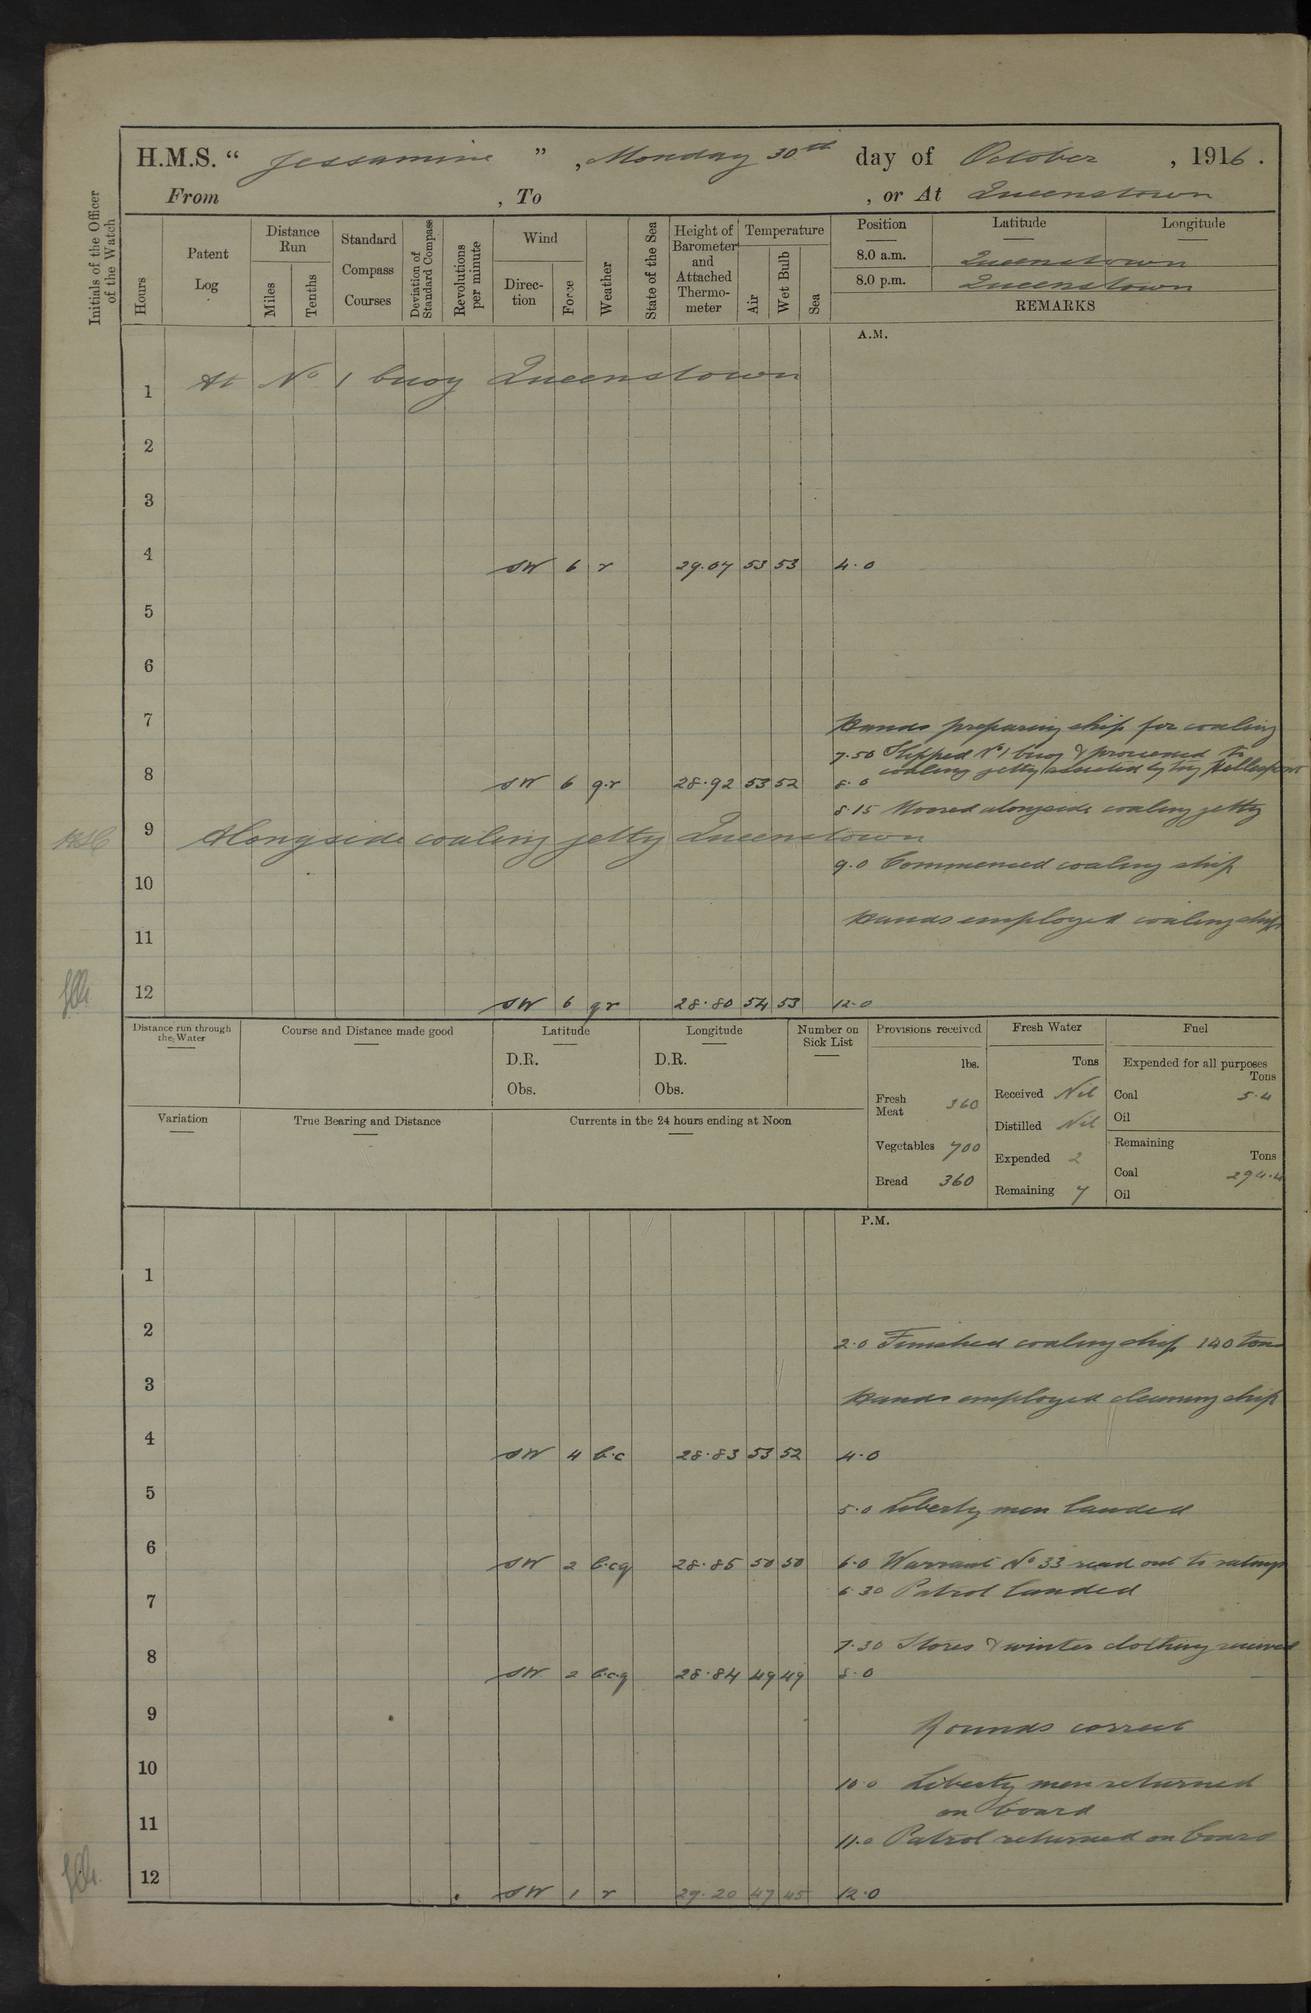 H.M.S. “ Jessamine ” , Monday 30th day of October , 1916 .
From , To , or At Queenstown
Initials of the Officer of the Watch
Hours
Patent Log
Distance Run
Miles
Tenths
Standard Compass Courses
Deviation of Standard Compass
Revolutions per minute
Wind
Direction
Force
Weather
State of the Sea
Height of Barometer and Attached Thermometer
Temperature
Air
Wet Bulb
Sea
Position Latitude Longitude
8.0 a.m. Queenstown
8.0 p.m. Queenstown
REMARKS
A.M.
1 At No 1 buoy Queenstown
2
3
4 SW 6 r 29.07 53 53 4.0
5
6
7 Hands preparing ship for coaling
7.50 Slipped No 1 buoy & proceeded to
coaling jetty assisted by tug Hellespont
8 SW 6 q.r 28.92 53 52 8.0
8.15 Moored alongside coaling jetty
9 Alongside coaling jetty Queenstown
9.0 Commenced coaling ship
10
Hands employed coaling ship
11
12 SW 6 qr 28.80 54 53 12.0
Distance run through the Water
Course and Distance made good
Latitude
D.R.
Obs.
Longitude
D.R.
Obs.
Number on Sick List
Provisions received
lbs.
Fresh Meat 360
Vegetables 700
Bread 360
Fresh Water
Tons
Received Nil
Distilled Nil
Expended 2
Remaining 7
Fuel
Expended for all purposes
Tons
Coal 5.4
Oil
Remaining
Tons
Coal 294.4
Oil
Variation
True Bearing and Distance
Currents in the 24 hours ending at Noon
P.M.
1
2
2.0 Finished coaling ship 140 tons
3
Hands employed cleaning ship
4 SW 4 b.c 28.83 53 52 4.0
5
5.0 Liberty men landed
6 SW 2 b.cq 28.85 50 50 6.0 Warrant No 33 read out to ratings
6.30 Patrol landed
7
7.30 Stores & winter clothing received
8 SW 2 b.c.q 28.84 49 49 8.0
9
Rounds correct
10
10.0 Liberty men returned
on board
11
11.0 Patrol returned on board
12 SW 1 r 29.20 47 45 12.0